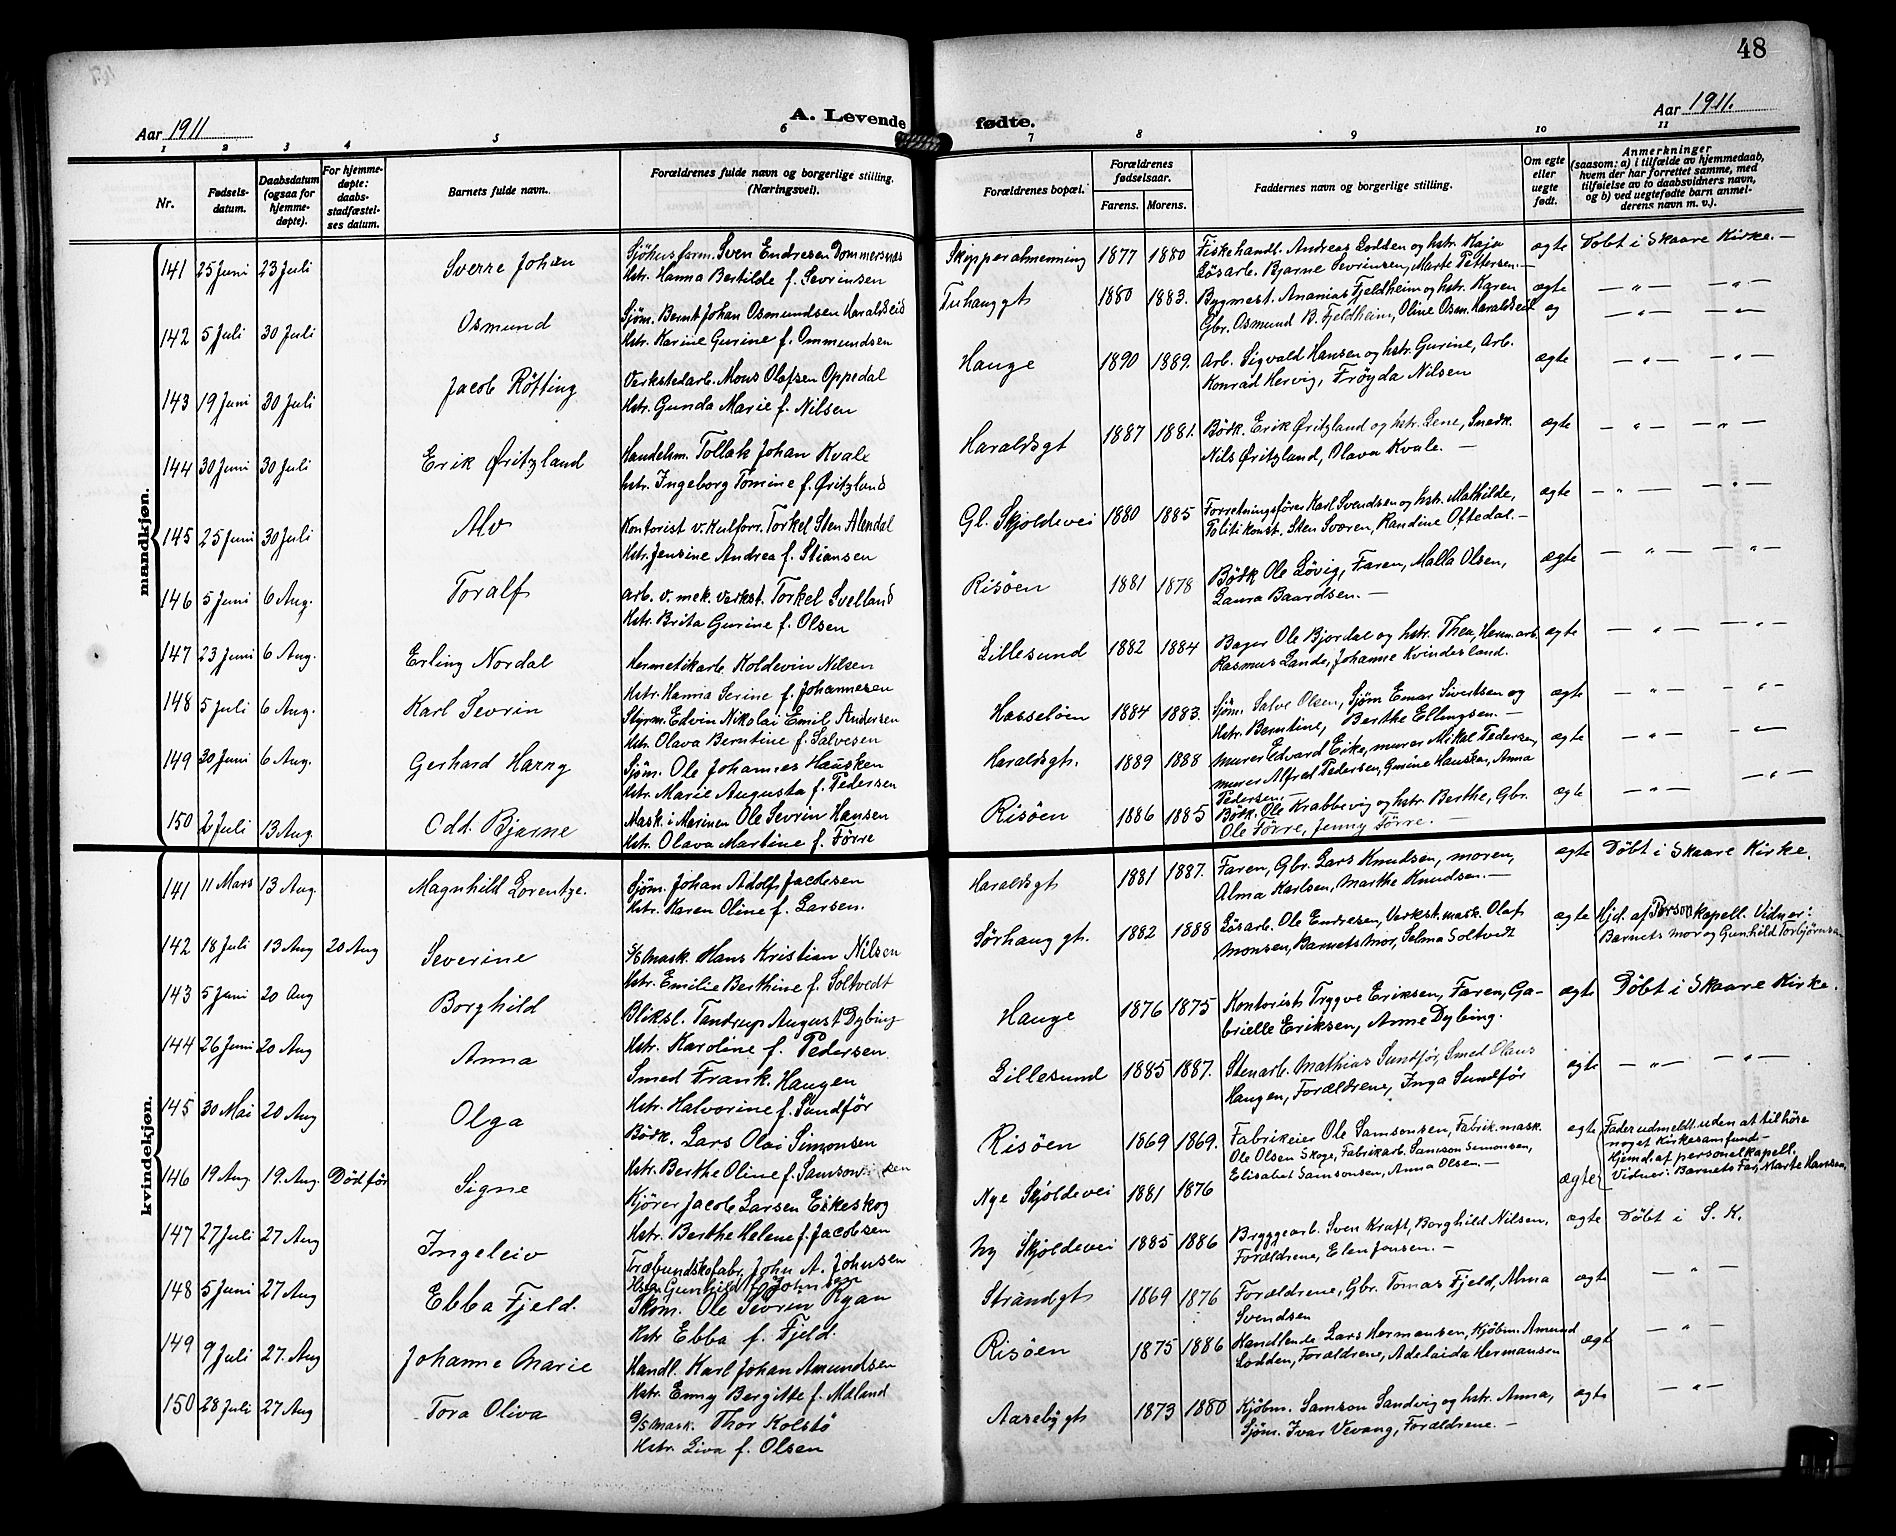 48
Aar 1911
A. Levende
fødte.
Aar 1911.
1 2 3 4 5 6 7 8 9 10 11
Nr.
Fødsels-
datum.
Daabsdatum
(ogsaa for
hjemme-
døpte).
For hjemme-
døpte:
daabs-
stadfæstel-
ses datum.
Barnets fulde navn.
Forældrenes fulde navn og borgerlige stilling.
(Næringsvei).
Forældrenes bopæl.
Forældrenes
fødselsaar.
Farens. Morens.
Faddernes navn og borgerlige stilling.
Om egte
eller
uegte
født.
Anmerkninger
(saasom: a) i tilfælde av hjemmedaab,
hvem der har forrettet samme, med
tilføielse av to daabsvidners navn,
og b) ved uegtefødte barn anmel-
derens navn m. v.).
mandkjøn.
141 25 Juni 23 Juli Sverre Johan Sjöhusform. Sven Endresen Dommersnes
Hstr. Hanna Bertilde f. Sevrinsen
Skipperalmenning 1877 1880 Fiskehandl. Andreas Lodden og hstr. Kaja
Lösarb. Bjarne Sevrinsen, Marte Pettersen. — ægte Döbt i Skaare Kirke. —
142 5 Juli 30 Juli Osmund Sjöm. Bernt Johan Osmundsen Haraldseid
Hstr. Karine Gurine f. Ommundsen
Tuhauggt 1880 1883. Bygmest. Ananias Fjeldheim og hstr. Karen
Gbr. Osmund B. Fjeldheim, Oline Osm. Haraldseid og ægte — " — — " —
— " — — " —
143 19 Juni 30 Juli Jacob Rötting Verkstedarb. Mons Olafsen Oppedal
Hstr. Gunda Marie f. Nilsen
Hauge 1890 1889. Arb. Sigvald Hansen og hstr. Gurine, Arb.
Konrad Hervig, Fröyda Nilsen ægte — " — — " —
144 30 Juni 30 Juli Erik Øritzland Handelsm. Tollak Johan Kvale
hstr. Ingeborg Tomine f. Øritzland
Haraldsgt 1887 1881. Bödk. Erik Øritzland og hstr. Lene, Snedk.
Nils Øritzland, Olava Kvale. — ægte — " — — " —
145 25 Juni 30 Juli Alv Kontorist v. kulforr. Torkel Sten Alendal
Hstr. Jensine Andrea f. Stiansen
Gl. Skjoldevei 1880 1885 Forretningsförer Karl Svendsen og hstr. Mathilde,
Politikonst. Sten Sværen, Randine Oftedal. — ægte — " — — " —
146 5 Juni 6 Aug. Toralf arb. v. mek. verkst. Torkel Svelland
Hstr. Brita Gurine f. Olsen
Risöen 1881 1878 Bödk Ole Lövig, Faren, Malla Olsen,
Laura Baardsen. — ægte — " — — " —
147 23 Juni 6 Aug. Erling Nordal Hermetikarb. Koldevin Nilsen
Hstr. Hanna Serine f. Johannesen
Lillesund 1882 1884 Bager Ole Bjordal og hstr. Thea, Herm.arb.
Rasmus Lande, Johanne Kvindesland. ægte — " — — " —
148 5 Juli 6 Aug. Karl Sevrin Styrm. Edvin Nikolai Emil Andersen
Hstr. Olava Berntine f. Salvesen
Hasselöen 1884 1883. Sjöm. Salve Olsen, Sjöm Emar Sivertsen og
Hstr. Berntine, Berthe Ellingsen. — ægte — " — — " —
149 30 Juni 6 Aug. Gerhard Harry Sjöm. Ole Johannes Hausken
Hstr. Marie Augusta f. Pedersen
Haraldsgt. 1889 1888 murer Edvard Eike, murer Mikal Pedersen,
murer Alfred Pedersen, Gurine Hausken, Anna
Pedersen. — ægte — " — — " —
150 2 Juli 13 Aug. Odd. Bjarne Mask. i Marinen Ole Sevrin Hansen
Hstr. Olava Martine f. Förre
Risöen 1886 1885 Bödk. Ole Krabbevig og hstr. Berthe, Gbr.
Ole Förre, Jenny Förre. — ægte — " — — " —
kvindekjøn.
141 11 Mars 13 Aug. Magnhild Lorentze. Sjöm. Johan Adolf Jacobsen
Hstr. Karen Oline f. Larsen.
Haraldsgt 1881 1887. Faren, Gbr. Lars Knudsen, moren,
Alma Karlsen, Marthe Knudsen. — ægte Döbt i Skaare Kirke.
142 18 Juli 13 Aug 20 Aug Severine S/S mask. Hans Kristian Nilsen
Hstr. Emilie Berthine f. Soltvedt
Sörhauggt. 1882 1888 Lösarb. Ole Endresen, Verkst.mask. Olaf
Monsen, Barnets Mor, Selma Soltvedt ægte Hjd. af Person.kapell. Vidner:
Barnets mor og Gunhild Torbjörnsen
143 5 Juni 20 Aug Borghild Bliksl. Tandrup August Dybing
Hstr. Karoline f. Pedersen
Hauge 1876 1875 Kontorist Trygve Eriksen, Faren, Ga-
brielle Eriksen, Anne Dybing. ægte Döbt i Skaare Kirke.
144 26 Juni 20 Aug Anna Smed Frank Haugen
Hstr. Halvorine f. Sundför
Lillesund 1885 1887. Stenarb. Mathias Sundför, Smed Olaus
Haugen, Forældrene, Inga Sundför ægte — " — — " —
145 30 Mai 20 Aug Olga Bödk. Lars Olai Simonsen
Hstr. Berthe Oline f. Samsonsen
Risöen 1869 1869. Fabrikeier Ole Samsonsen, Fabrik.mask.
Ole Olsen Skoge, Fabrikarb. Samson Simonsen,
Elisabet Samsonsen, Anna Olsen. — ægte Fader udmeldt uden at tilhöre
noget Kirkesamfund —
146 19 Aug. 19. Aug. Död för Signe Kjörer Jacob Larsen Eikeskog
Hstr. Berthe Helene f. Jacobsen
Nye Skjoldevei 1881 1876 ægte Hjemd. af personelkapell.
Vidner: Barnets Far, Marte Hansen,
147 27 Juli 27 Aug Ingeleiv Træbundskofabr. John A. Johnsen
Hstr. Gunhild f. Johnsen
Ny Skjoldevei 1885 1886 Bryggearb. Sven Kraft, Borghild Nilsen,
Forældrene, Elen Jensen. — ægte Döbt i S. K.
148 5 Juni 27 Aug Ebba Fjeld. Skom. Ole Sevrin Ryan
Hstr Ebba f. Fjeld.
Strandgt 1869 1876 Forældrene, Gbr. Tomas Fjeld, Alma
Svendsen ægte — " —
149 9 Juli 27. Aug Johanne Marie Handl. Karl Johan Amundsen
Hstr. Enny Bergitte f. Mæland
Risöen 1875 1886 Handlende Lars Hermansen, Kjöbm. Amund
Lodden, Forældrene, Adelaida Hermansen ægte — " —
150 28 Juli 27 Aug Tora Oliva D/S mask. Thor Kolstö
Hstr. Liva f. Olsen
Aasebygt 1873 1880 Kjöbm. Samson Sandvig og hstr. Anna,
Sjöm. Ivar Vevang, Forældrene. — ægte — " —